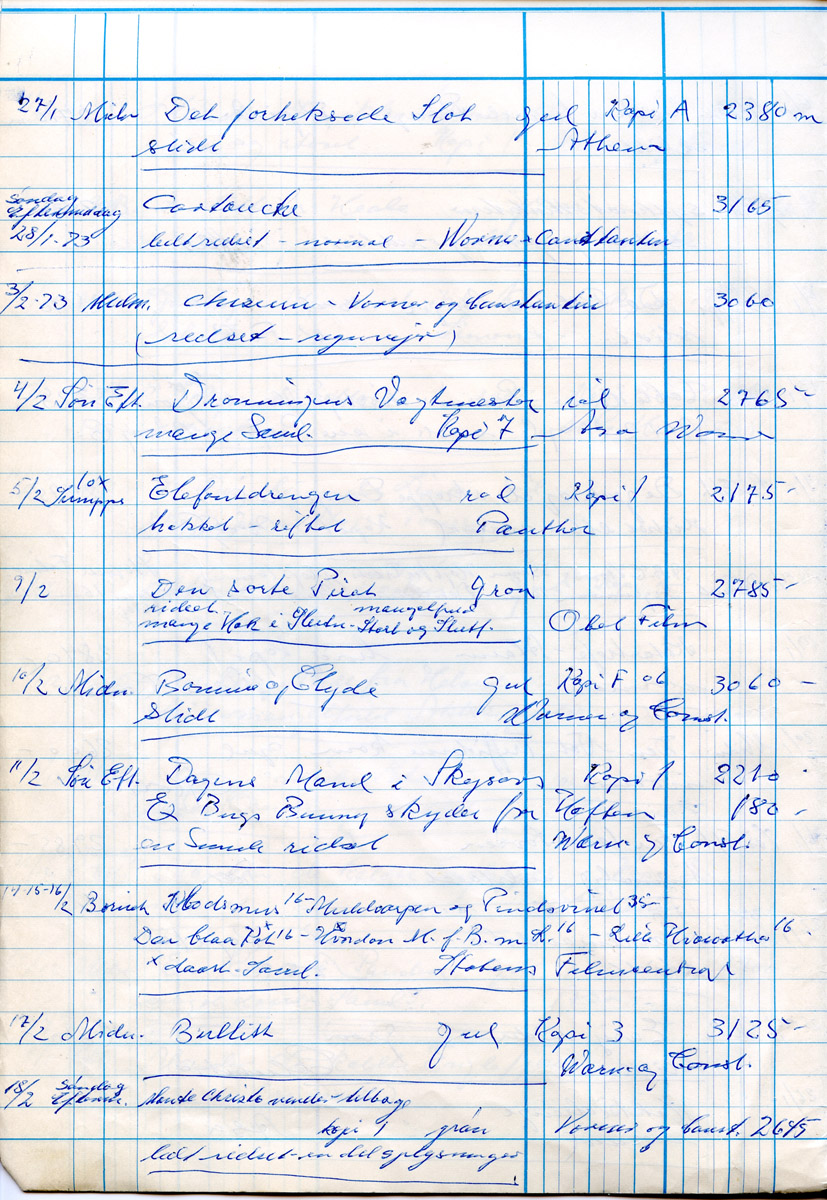 27/1 Midn. Det forheksede Slot gul Kopi A 2380 m
slidt Athena
Søndag
Eftermiddag Cartouche 3165
28/1-73 lidt ridset - normal - Warner & Constantin
3/2-73 Midn. - Varner og Constantin 3060
(ridset - regnvejr)
4/2 Søn Eft. Dronningens Vagtmester 2765-
mange Saml. Kopi 7
5/2 10x Elefantdrengen rød Kopi 1 2175-
hakket - riflet Panther
9/2 Den sorte Pirat grøn 2785-
ridset mangelfuld
mange Hak i Start og Slut. Obel Film
10/2 Midn. Bonnie og Clyde gul Kopi F 06 3060-
Slidt Warner og Const.
11/2 Søn Eft. Dagens Mand i Kopi 1 2210
Ex Bugs Bunny skyder fra Hoften 180-
en Smule ridset Warner og Const.
14-15-16/2 Klodsmus 16- Muldvarpen og Pindsvinet 35-
Den blaa 16- Hvordan M. f. B. m. H. 16 - Lille Hiawatha 16-
x daarl. Saml. Statens Filmcentral
17/2 Midn. Bullitt gul Kopi 3 3125-
Warner og Const.
18/2 Søndag Efterm. Monte Christo vender tilbage
kopi 1 grøn Varner og Const. 2645
lidt ridset - en del splejsninger